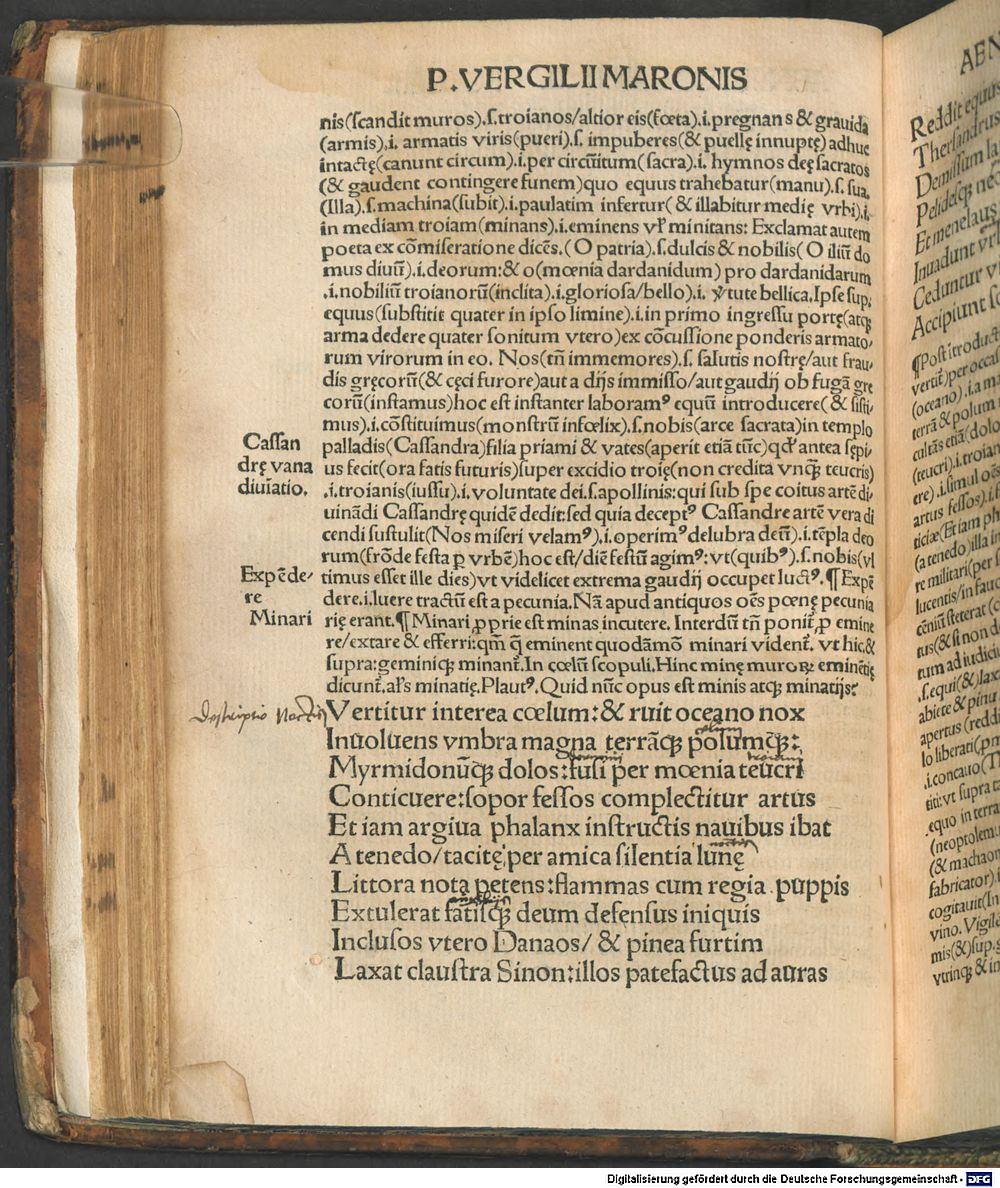 P.VERGILII MARONIS
nis(ſcandit muros).ſ.troianos/altior eis(fœta).i.pregnans & grauida
(armis).i. armatis viris(pueri).ſ. impuberes(& puellę innuptę) adhuc
intactę(canunt circum).i.per circũitum(ſacra).i. hymnos deę ſacratos
(& gaudent contingere funem)quo equus trahebatur(manu).ſ. ſua.
(Illa).ſ.machina(ſubit).i.paulatim infertur( & illabitur medię vrbi).i.
in mediam troiam(minans).i.eminens vł minitans: Exclamat autem
poeta ex cõmiſeratione dicẽs.( O patria).ſ.dulcis & nobilis( O iliũ do
mus diuũ).i.deorum:& o(mœnia dardanidum) pro dardanidarum
.i.nobiliũ troianorũ(inclita).i.glorioſa/bello).i. v̾tute bellica.Ipſe ſup.
equus(ſubſtitit quater in ipſo limine).i.in primo ingreſſu portę(atqꝫ
arma dedere quater ſonitum vtero)ex cõcuſſione ponderis armato-
rum virorum in eo. Nos(tñ immemores).ſ. ſalutis noſtrę/aut frau-
dis gręcorũ(& cęci furore)aut a dijs immiſſo/aut gaudij ob fugã gre
corũ(inſtamus)hoc eſt inſtanter laboramꝰ equũ introducere( & ſiſti-
mus).i.cõſtituimus(monſtrũ infœlix).ſ.nobis(arce ſacrata)in templo
palladis(Caſſandra)filia priami & vates(aperit etiã tũc)qd̕ antea ſępi-
us fecit(ora fatis futuris)ſuper excidio troię(non credita vnqꝫ teucris)
.i.troianis(iuſſu).i.voluntate dei.ſ.apollinis:qui ſub ſpe coitus artẽ di-
uinãdi Caſſandrę quidẽ dedit:ſed quia deceptꝰ Caſſandre artẽ vera di
cendi ſuſtulit(Nos miſeri velamꝰ).i.operimꝰ delubra deũ).i.tẽpla deo
rum(frõde feſta p̱ vrbẽ)hoc eſt/diẽ feſtũ agimꝰ:vt(quibꝰ).ſ.nobis(vl
timus eſſet ille dies)vt videlicet extrema gaudij occupet luctꝰ.¶Expẽ
dere.i.luere tractũ eſt a pecunia.Nã apud antiquos oẽs pœnę pecunia
rię erant.¶Minari ꝓprie eſt minas incutere. Interdũ tñ ponit̃ ꝓ emine
re/extare & efferri:qm̃ q̃ eminent quodãmõ minari vident̃. vt hic.&
ſupra:geminiqꝫ minant̃.In cœlũ ſcopuli.Hinc minę muroꝝ eminẽtię
dicunt̃.ałs minatię.Plautꝰ.Quid nũc opus eſt minis atqꝫ minatijs?
Caſſan
drę vana
diuiatio.
Expẽde-
re
Minari
Deſcriptio Noctis
Vertitur interea cœlum:& ruit oceano nox
Inuoluens vmbra magna terrãqꝫ polumqꝫ:
Myrmidonũqꝫ dolos:fuſi per mœnia teucri
Conticuere:ſopor feſſos complectitur artus
Et iam argiua phalanx inſtructis nauibus ibat
A tenedo/tacitę per amica ſilentia lunę
Littora nota petens:flammas cum regia puppis
Extulerat fatiſqꝫ deum defenſus iniquis
Incluſos vtero Danaos/ & pinea furtim
Laxat clauſtra Sinon:illos patefactus ad auras
AEN
Reddit equus
Therſandrus
Demiſſum la
Pelideſqꝫ neo
Et menelaus
Inuadunt vrb
Ceduntur vi
Accipiunt ſo
¶Poſt introduct
vertit̃)per occaſ
(oceano).i.a ma
terrã & polum
cultãs etiã(dolo
(teucri).i.troian
ere).i.ſimul oẽs
artus feſſos).i.f
ticiæ(Et iam ph
(a tenedo)illa in
re militari(per ſ
lucentis/in fauc
cẽniũ ſteterat (c
tus(& ſi non de
tum ad iudiciu
.ſ.equi(&)lax
abiete & pinu
apertus (reddi
lo liberati(pm
.i.concauo(T
titi:vt ſupra t
.equo in terra
(neoptolem
(& machaon
fabricator).i
cogitauit(In
vino. Vigile
mis(&)ſup.
vtrinqꝫ & in
Digitalisierung gefördert durch die Deutsche Forschungsgemeinschaft - DFG